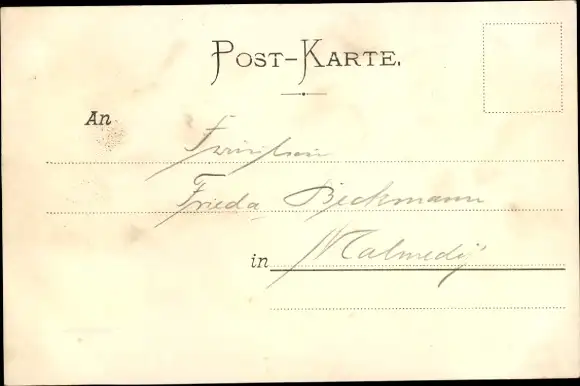 POST-KARTE.
An
Fräulein
Frieda Beckmann
in Malmedy